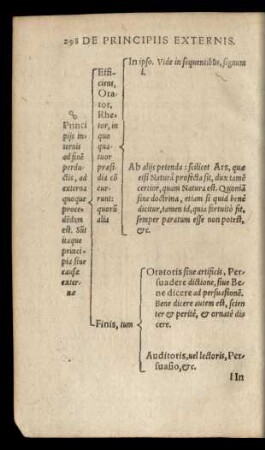 298 DE PRINCIPIIS EXTERNIS.
Princi
pijs in
ternis
ad finē
perdu
ctis, ad
externa
quoque
proce
dēdum
est. Sūt
itaque
princi-
pia siue
causæ
exter
næ
Effi
ciens,
Ora
tor,
Rhe
tor, in
quo
qua-
tuor
præsi
dia cō
cur-
runt:
quorū
alia
In ipso. Vide in sequentibus, signum
1.
Ab alijs petenda: scilicet Ars, quæ
etsi Naturâ profecta sit, dux tamē
certior, quam Natura est. Quoniā
sine doctrina, etiam si quid benè
dicitur, tamen id, quia fortuitò fit,
semper paratum esse non potest,
&c.
Finis, tum
Oratoris siue artificis, Per-
suadere dictione, siue Be
ne dicere ad persuasionē.
Bene dicere autem est, scien
ter & peritè, & ornatè di-
cere.
Auditoris, uel lectoris, Per-
suasio, &c.
1 In